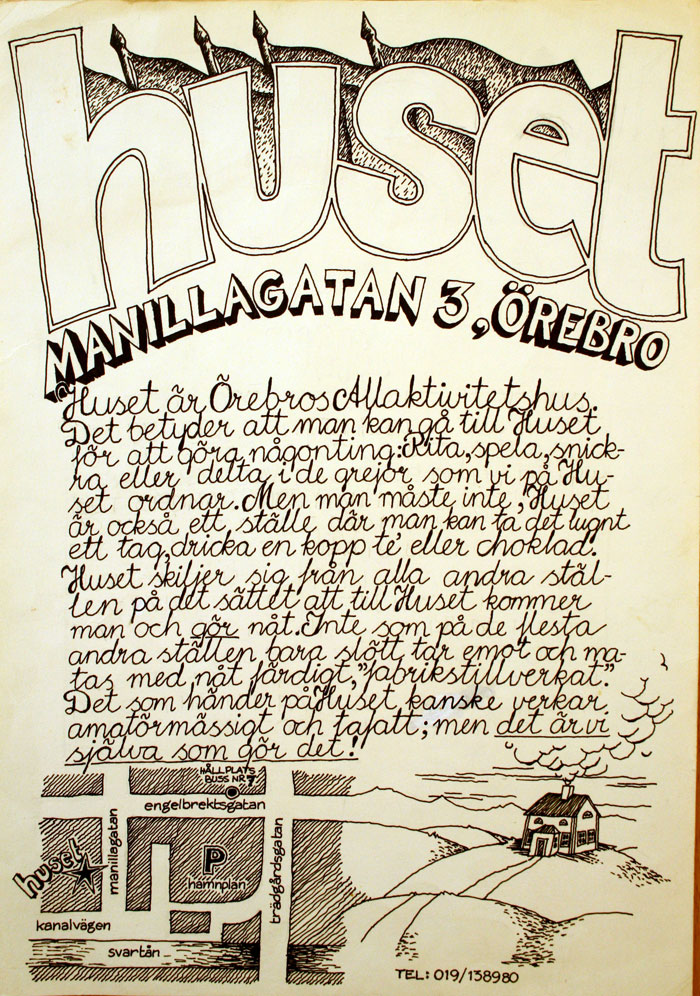 huset
MANILLAGATAN 3, ÖREBRO
Huset är Örebros Allaktivitetshus.
Det betyder att man kan gå till Huset
för att göra någonting: Rita, spela, snick-
ra eller delta i de grejor som vi på Hu-
set ordnar. Men man måste inte, Huset
är också ett ställe där man kan ta det lugnt
ett tag, dricka en kopp te eller choklad.
Huset skiljer sig från alla andra stäl-
len på det sättet att till Huset kommer
man och gör nåt. Inte som på de flesta
andra ställen bara slött tar emot och ma-
tas med nåt färdigt, "fabrikstillverkat".
Det som händer på Huset kanske verkar
amatörmässigt och tafatt; men det är vi
själva som gör det!
HÅLLPLATS
BUSS NR 7
engelbrektsgatan
manillagatan
huset
P
hamnplan
trädgårdsgatan
kanalvägen
svartån
TEL: 019/138980